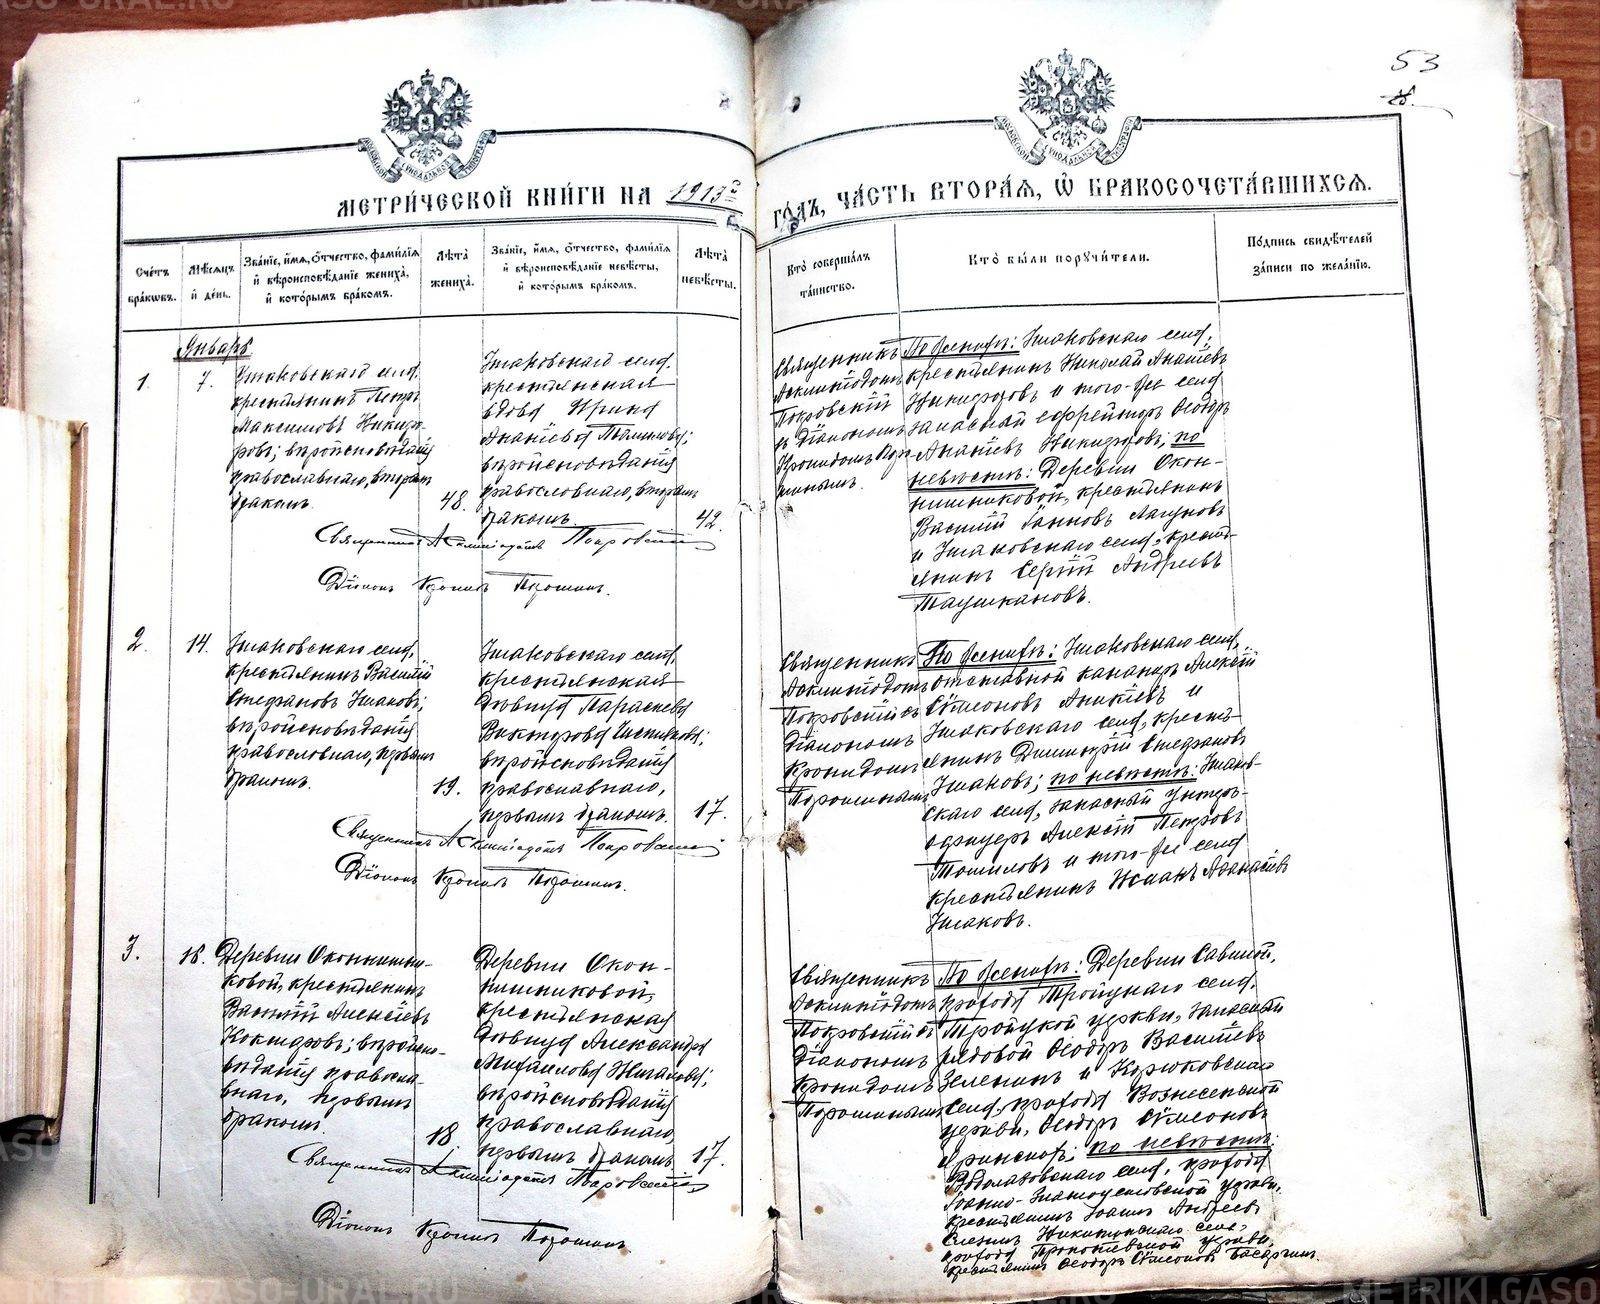 53
МЕТРИ́ЧЕСКОЙ КНИ́ГИ НА 1913й
ГО́ДЪ, ЧА́СТЬ ВТОРА́Я, Ѡ БРАКОСОЧЕТА́ВШИХСЯ.
Сче́тъ бра́ковъ.
Мѣ́сяцъ и де́нь.
Зва́нїе, и́мя, о́тчество, фами́лїя и вѣроисповѣ́данїе жениха̀, и кото́рымъ бра́комъ.
Лѣ́та жениха̀.
Зва́нїе, и́мя, о́тчество, фами́лїя и вѣроисповѣ́данїе невѣ́сты, и кото́рымъ бра́комъ.
Лѣ́та невѣ́сты.
Кто̀ соверша́лъ та́инство.
Кто̀ бы́ли порꙋчи́тели.
По́дпись свидѣ́телей за́писи по жела́нїю.
Январь
1.
7.
Ушаковскаго села
крестьянинъ Петръ
Максимовъ Никифо-
ровъ; вѣроисповѣданія
православнаго, вторымъ
бракомъ.
48.
Ушаковскаго села
крестьянская
вдова Ирина
Ананіева
вѣроисповѣданія
православнаго, вторымъ
бракомъ.
42.
Священникъ
Асклипіодотъ
Покровскій
съ діакономъ
Кронидомъ Поро-
шинымъ.
По женихѣ: Ушаковскаго села,
крестьянинъ Николай Ананіевъ
Никифоровъ и того-же села
запасный ефрейторъ Ѳеодоръ
Ананіевъ Никифоровъ; по
невѣстѣ: Деревни Окон-
нишниковой, крестьянинъ
Василій Іаковъ Лагуновъ
и Ушаковскаго села, кресть-
янинъ Сергій Андреевъ
Таушкановъ.
Священникъ Асклипіодотъ Покровскій
Діаконъ Кронидъ Порошинъ.
2.
14.
Ушаковскаго села,
крестьянинъ Василій
Стефановъ Ушаковъ;
вѣроисповѣданія
православнаго, первымъ
бракомъ.
19.
Ушаковскаго села,
крестьянская
дѣвица Параскева
Викторова
вѣроисповѣданія
православнаго,
первымъ бракомъ.
17.
Священникъ
Асклипіодотъ
Покровскій съ
діакономъ
Кронидомъ
Порошинымъ
По женихѣ: Ушаковскаго села,
отставной канониръ Алексій
Сѵмеоновъ Аникіевъ и
Ушаковскаго села, кресть-
янинъ Димитрій Стефановъ
Ушаковъ; по невѣстѣ: Ушаков-
скаго села, запасный унтеръ-
офицеръ Алексій Петровъ
Томиловъ и того-же села
крестьянинъ Исаакъ Аѳанасіевъ
Ушаковъ.
Священникъ Асклипіодотъ Покровскій
Діаконъ Кронидъ Порошинъ.
3.
18.
Деревни Оконнишни-
ковой, крестьянинъ
Василій Алексіевъ
вѣроиспо-
вѣданія правосла-
внаго, первымъ
бракомъ.
18.
Деревни Окон-
нишниковой,
крестьянская
дѣвица Александра
Михаилова
вѣроисповѣданія
православнаго,
первымъ бракомъ
17.
Священникъ
Асклипіодотъ
Покровскій съ
діакономъ
Кронидомъ
Порошинымъ
По женихѣ: Деревни Савиной,
прихода Троицкаго села,
Троицкой церкви, запасный
рядовой Ѳеодоръ Василіевъ
Зеленинъ и Корюковскаго
села, прихода Вознесенской
церкви, Ѳеодоръ Сѵмеоновъ
по невѣстѣ:
Водолазовскаго села, прихода
Іоанно-Златоустовской церкви,
крестьянинъ Іоаннъ Андреевъ
Никитинскаго села,
прихода Прокопіевской церкви,
крестьянинъ Ѳеодоръ Сѵмеоновъ Басаргинъ.
Священникъ Асклипіодотъ Покровскій
Діаконъ Кронидъ Порошинъ.
METRIKI.GASO-URAL.RU